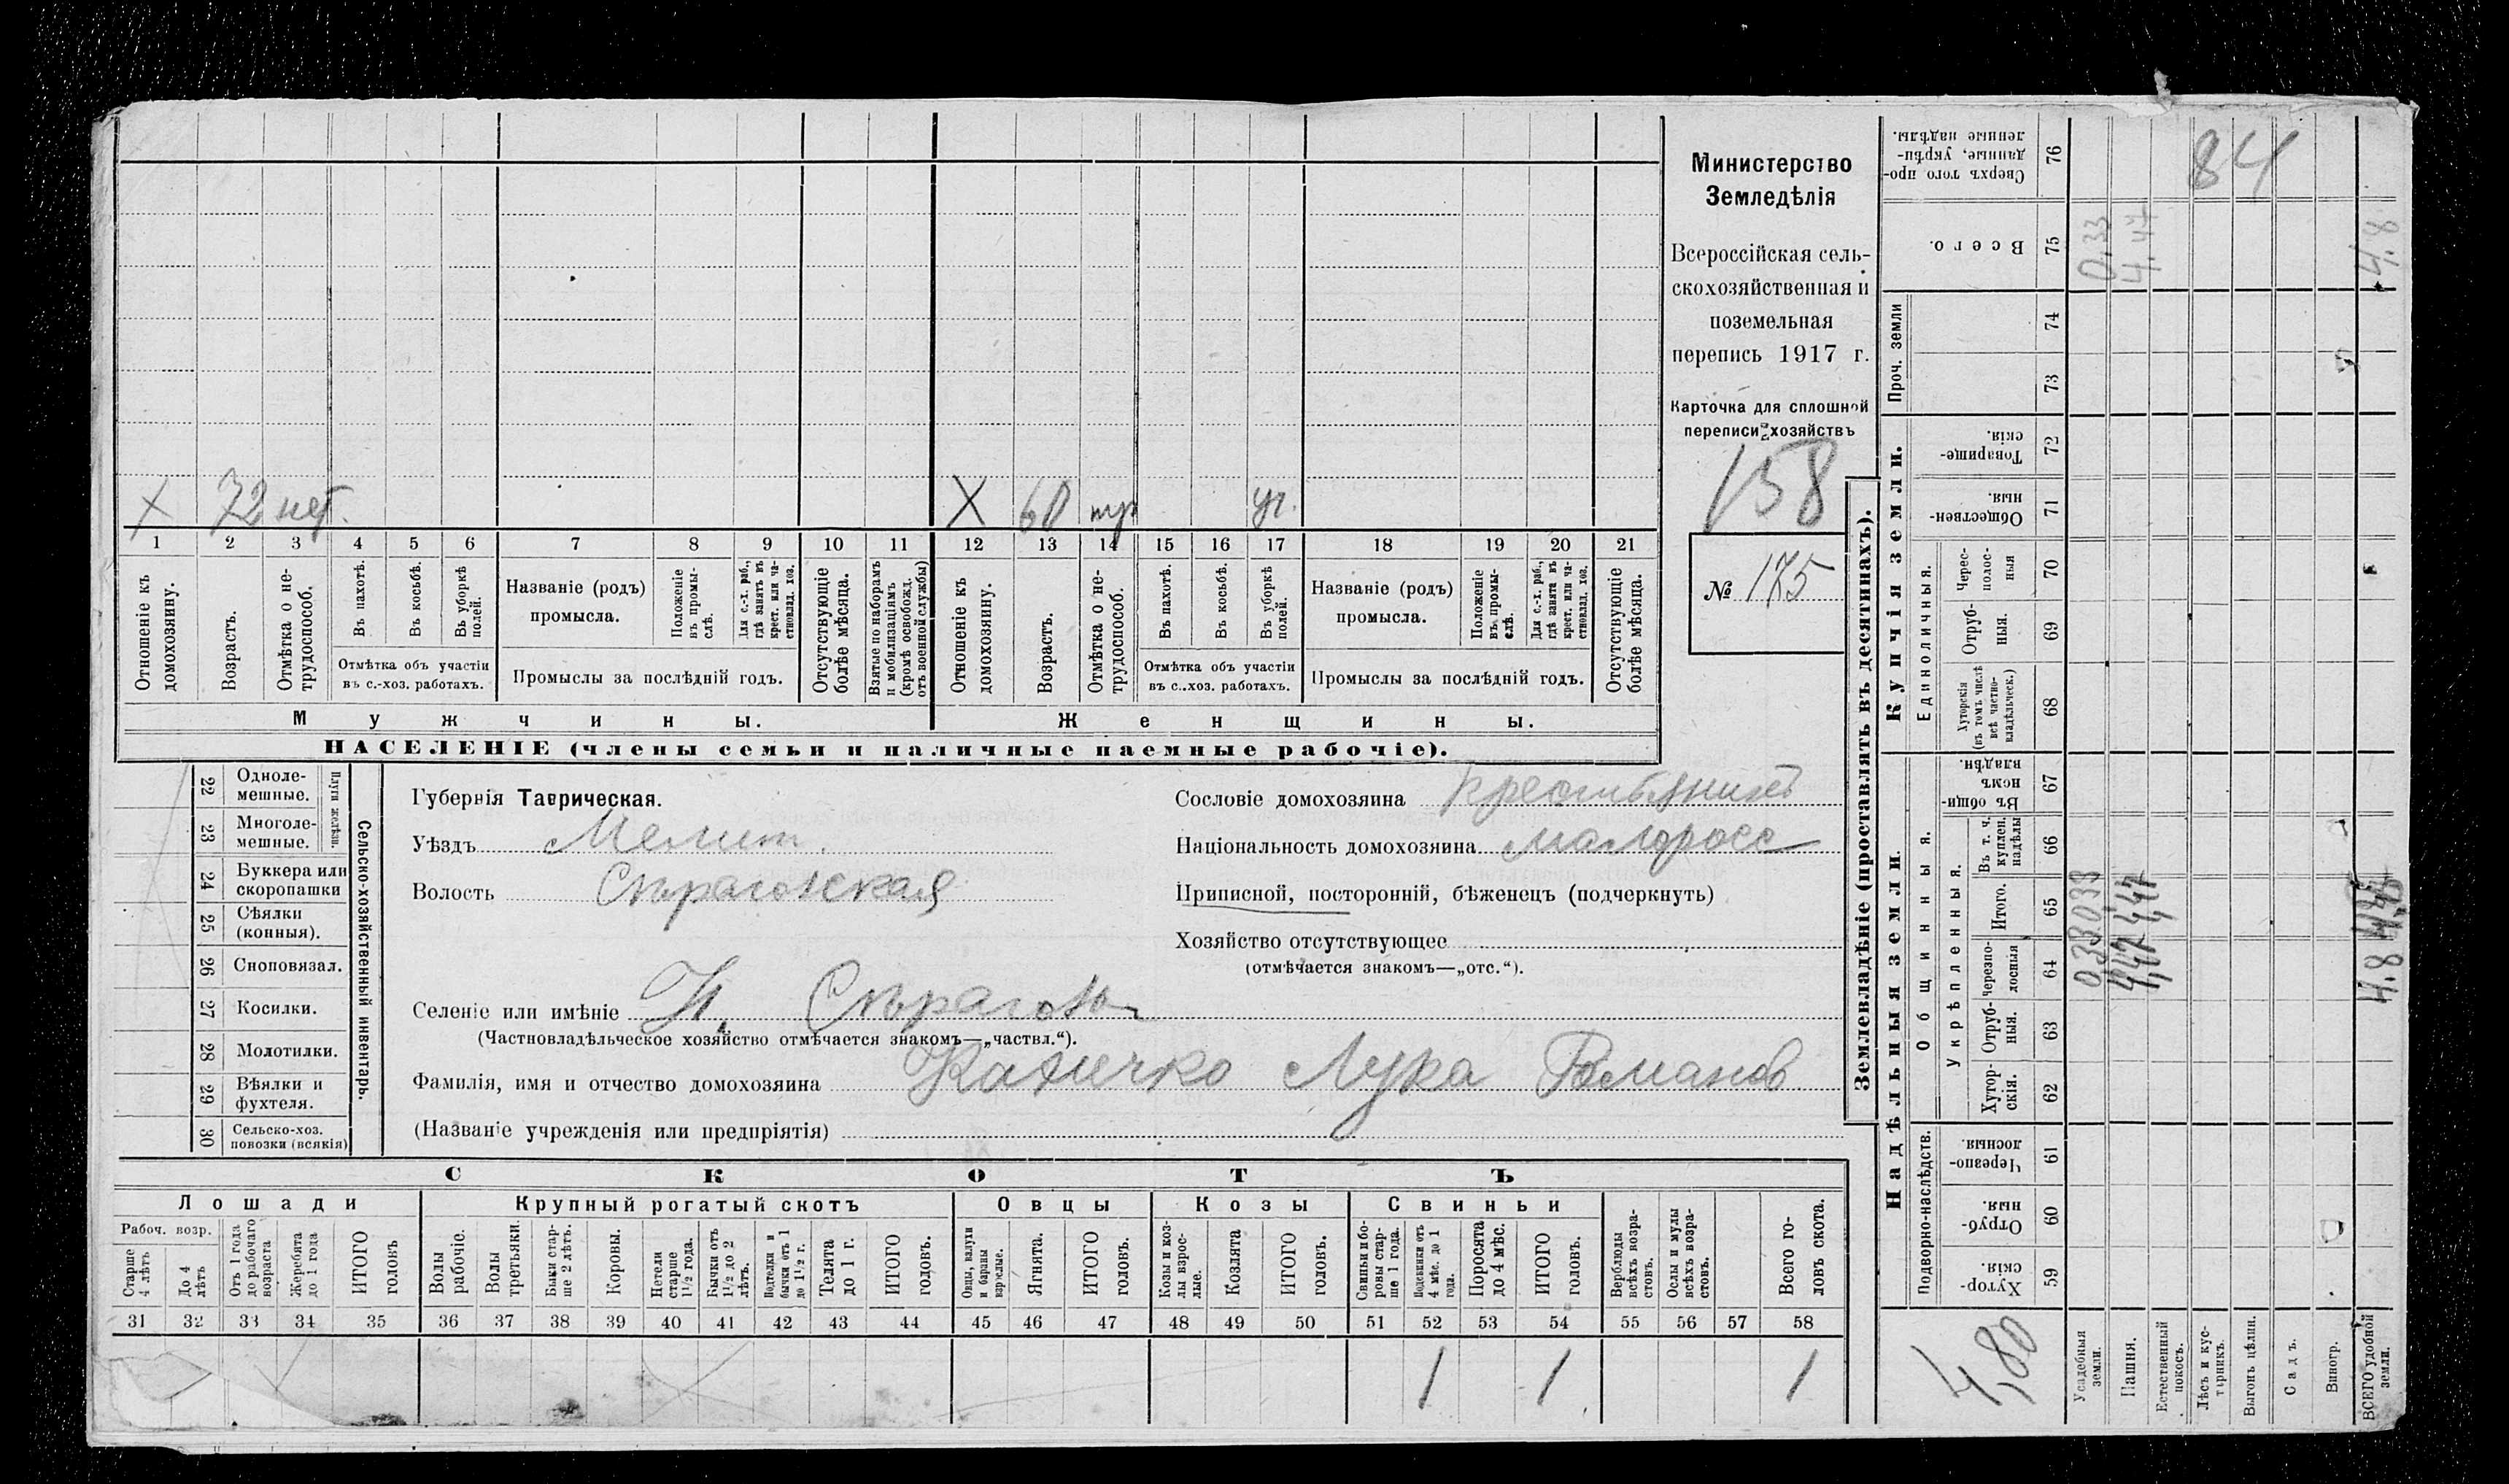 Министерство
Земледѣлія
Всероссійская сель-
скохозяйственная и
поземельная
перепись 1917 г.
Карточка для сплошной
переписи хозяйствъ
158
№ 175
X 72 нет. X 60 ур.
1 2 3 4 5 6 7 8 9 10 11 12 13 14 15 16 17 18 19 20 21
Отношеніе къ домохозяину.
Возрастъ.
Отмѣтка о не-трудоспособ.
Въ пахотѣ.
Въ косьбѣ.
Въ уборкѣ полей.
Отмѣтка объ участіи
въ с.-хоз. работахъ.
Названіе (родъ)
промысла.
Положеніе въ промы-слѣ.
Для с.-х. раб., гдѣ занятъ въ крест. или ча-стновлад. хоз.
Промыслы за послѣдній годъ.
Отсутствующіе болѣе мѣсяца.
Взятые по наборамъ и мобилизаціямъ (кромѣ освобожд. отъ военной службы)
Отношеніе къ домохозяину.
Возрастъ.
Отмѣтка о не-трудоспособ.
Въ пахотѣ.
Въ косьбѣ.
Въ уборкѣ полей.
Отмѣтка объ участіи
въ с.-хоз. работахъ.
Названіе (родъ)
промысла.
Положеніе въ промы-слѣ.
Для с.-х. раб., гдѣ занята въ крест. или ча-стновлад. хоз.
Промыслы за послѣдній годъ.
Отсутствующіе болѣе мѣсяца.
Мужчины. Женщины.
НАСЕЛЕНІЕ (члены семьи и наличные наемные рабочіе).
22 Одноле-мешные.
23 Многоле-мешные.
Плуги желѣзн.
24 Буккера или скоропашки
25 Сѣялки (конныя).
26 Сноповязал.
27 Косилки.
28 Молотилки.
29 Вѣялки и фухтеля.
30 Сельско-хоз. повозки (всякія)
Сельско-хозяйственный инвентарь.
Губернія Таврическая.
Уѣздъ Мелит.
Волость Сѣрагозская
Селеніе или имѣніе Н. Сѣрагозы
(Частновладѣльческое хозяйство отмѣчается знакомъ—„частвл.“).
Фамилія, имя и отчество домохозяина Лука Романов
(Названіе учрежденія или предпріятія)
Сословіе домохозяина крестьянинъ
Національность домохозяина малоросс
Приписной, посторонній, бѣженецъ (подчеркнуть)
Хозяйство отсутствующее
(отмѣчается знакомъ—„отс.“).
СКОТЪ
Лошади Крупный рогатый скотъ Овцы Козы Свиньи
Рабоч. возр.
Старше 4 лѣтъ
До 4 лѣтъ
Отъ 1 года до рабочаго возраста
Жеребята до 1 года
ИТОГО головъ
Волы рабочіе.
Волы третьяки.
Быки стар-ше 2 лѣтъ.
Коровы.
Нетели старше 1 1/2 года.
Бычки отъ 1 1/2 до 2 лѣтъ.
Подтелки и бычки отъ 1 до 1 1/2 г.
Телята до 1 г.
ИТОГО головъ.
Овцы, валухи и бараны взрослые.
Ягнята.
ИТОГО головъ.
Козы и коз-лы взрос-лые.
Козлята
ИТОГО головъ.
Свиньи и бо-ровы стар-ше 1 года.
Подсвинки отъ 4 мѣс. до 1 года.
Поросята до 4 мѣс.
ИТОГО головъ.
Верблюды всѣхъ возра-стовъ.
Ослы и мулы всѣхъ возра-стовъ.
Всего го-ловъ скота.
31 32 33 34 35 36 37 38 39 40 41 42 43 44 45 46 47 48 49 50 51 52 53 54 55 56 57 58
1 1 1
Землевладѣніе (проставлять въ десятинахъ).
Купчія земли.
Надѣльныя земли.
Проч. земли
Единоличныя.
Общинныя.
Укрѣпленныя.
Подворно-наслѣдств.
76 Сверхъ того про-данные, укрѣп-ленные надѣлы.
84
75 Всего. 0.33 4.47 4.8
74
73
72 Товарище-скія.
71 Обществен-ныя.
70 Черес-полос-ныя
69 Отруб-ныя.
68 Хуторскія (въ томъ числѣ всѣ частно-владѣльческ.)
67 Въ общи-номъ владѣн.
66 Въ т. ч. куплен. надѣлы
65 Итого. 033 4,47
64 Черезпо-лосныя 033 4,47 4.8
63 Отруб-ныя.
62 Хутор-скія.
61 Черезпо-лосныя.
60 Отруб-ныя.
59 Хутор-скія.
4,80
Усадебныя земли.
Пашня.
Естественный покосъ.
Лѣсъ и кус-тарникъ.
Выгонъ цѣлин.
Садъ.
Виногр.
ВСЕГО удобной земли.